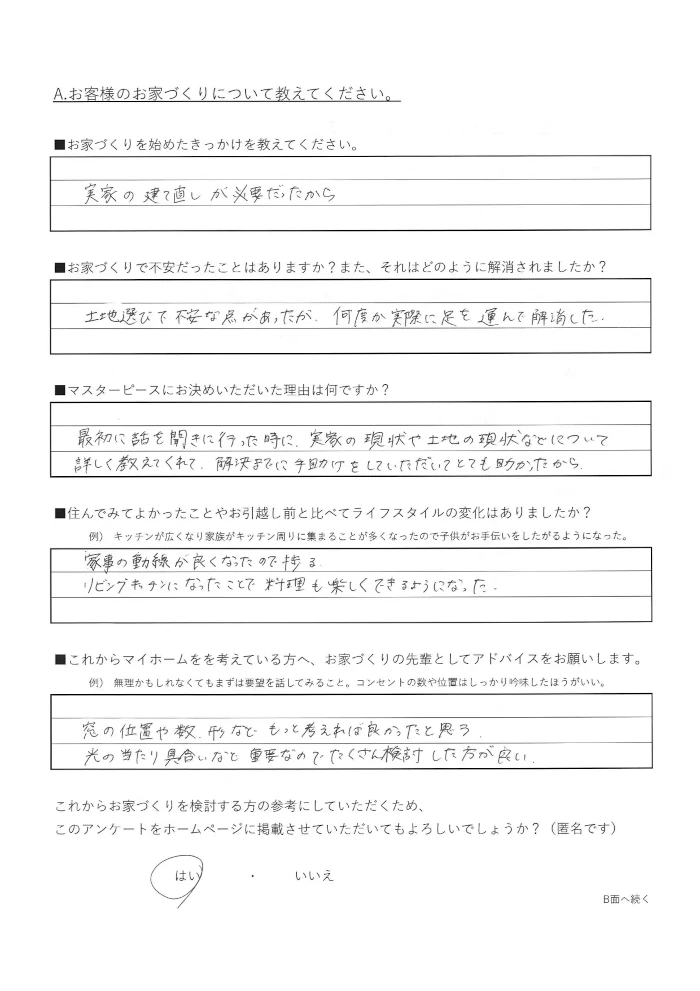 A.お客様のお家づくりについて教えてください。
■お家づくりを始めたきっかけを教えてください。
実家の建て直しが必要だったから
■お家づくりで不安だったことはありますか？また、それはどのように解消されましたか？
土地選びで不安な点があったが、何度か実際に足を運んで解消した。
■マスターピースにお決めいただいた理由は何ですか？
最初に話を聞きに行った時に、実家の現状や土地の現状などについて
詳しく教えてくれて、解決までに手助けをしていただいてとても助かったから。
■住んでみてよかったことやお引越し前と比べてライフスタイルの変化はありましたか？
例） キッチンが広くなり家族がキッチン周りに集まることが多くなったので子供がお手伝いをしたがるようになった。
家事の動線が良くなったので捗る。
リビングキッチンになったことで料理も楽しくできるようになった。
■これからマイホームをを考えている方へ、お家づくりの先輩としてアドバイスをお願いします。
例） 無理かもしれなくてもまずは要望を話してみること。コンセントの数や位置はしっかり吟味したほうがいい。
窓の位置や数、形などもっと考えれば良かったと思う。
光の当たり具合いなど重要なのでたくさん検討した方が良い。
これからお家づくりを検討する方の参考にしていただくため、
このアンケートをホームページに掲載させていただいてもよろしいでしょうか？（匿名です）
はい ・ いいえ
B面へ続く